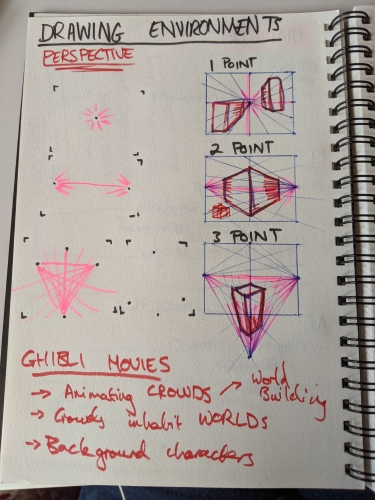 DRAWING ENVIRONMENTS
PERSPECTIVE
1 POINT
2 POINT
3 POINT
GHIBLI MOVIES
→ Animating CROWDS → World Building
→ Crowds inhabit WORLDS
→ Background characters